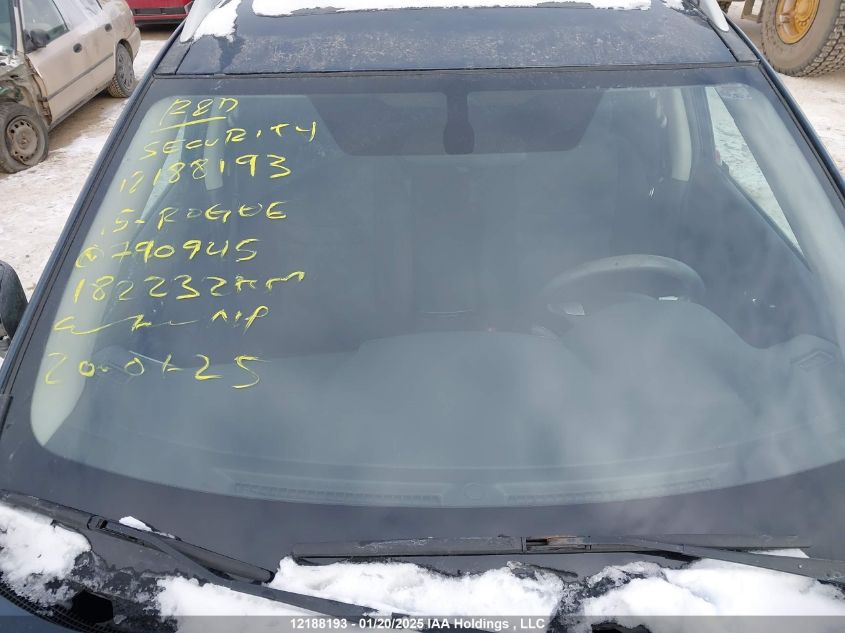 R&D
SECURITY
12188193
15-ROGUE
790945
182232KM
20-01-25
12188193 - 01/20/2025 IAA Holdings , LLC